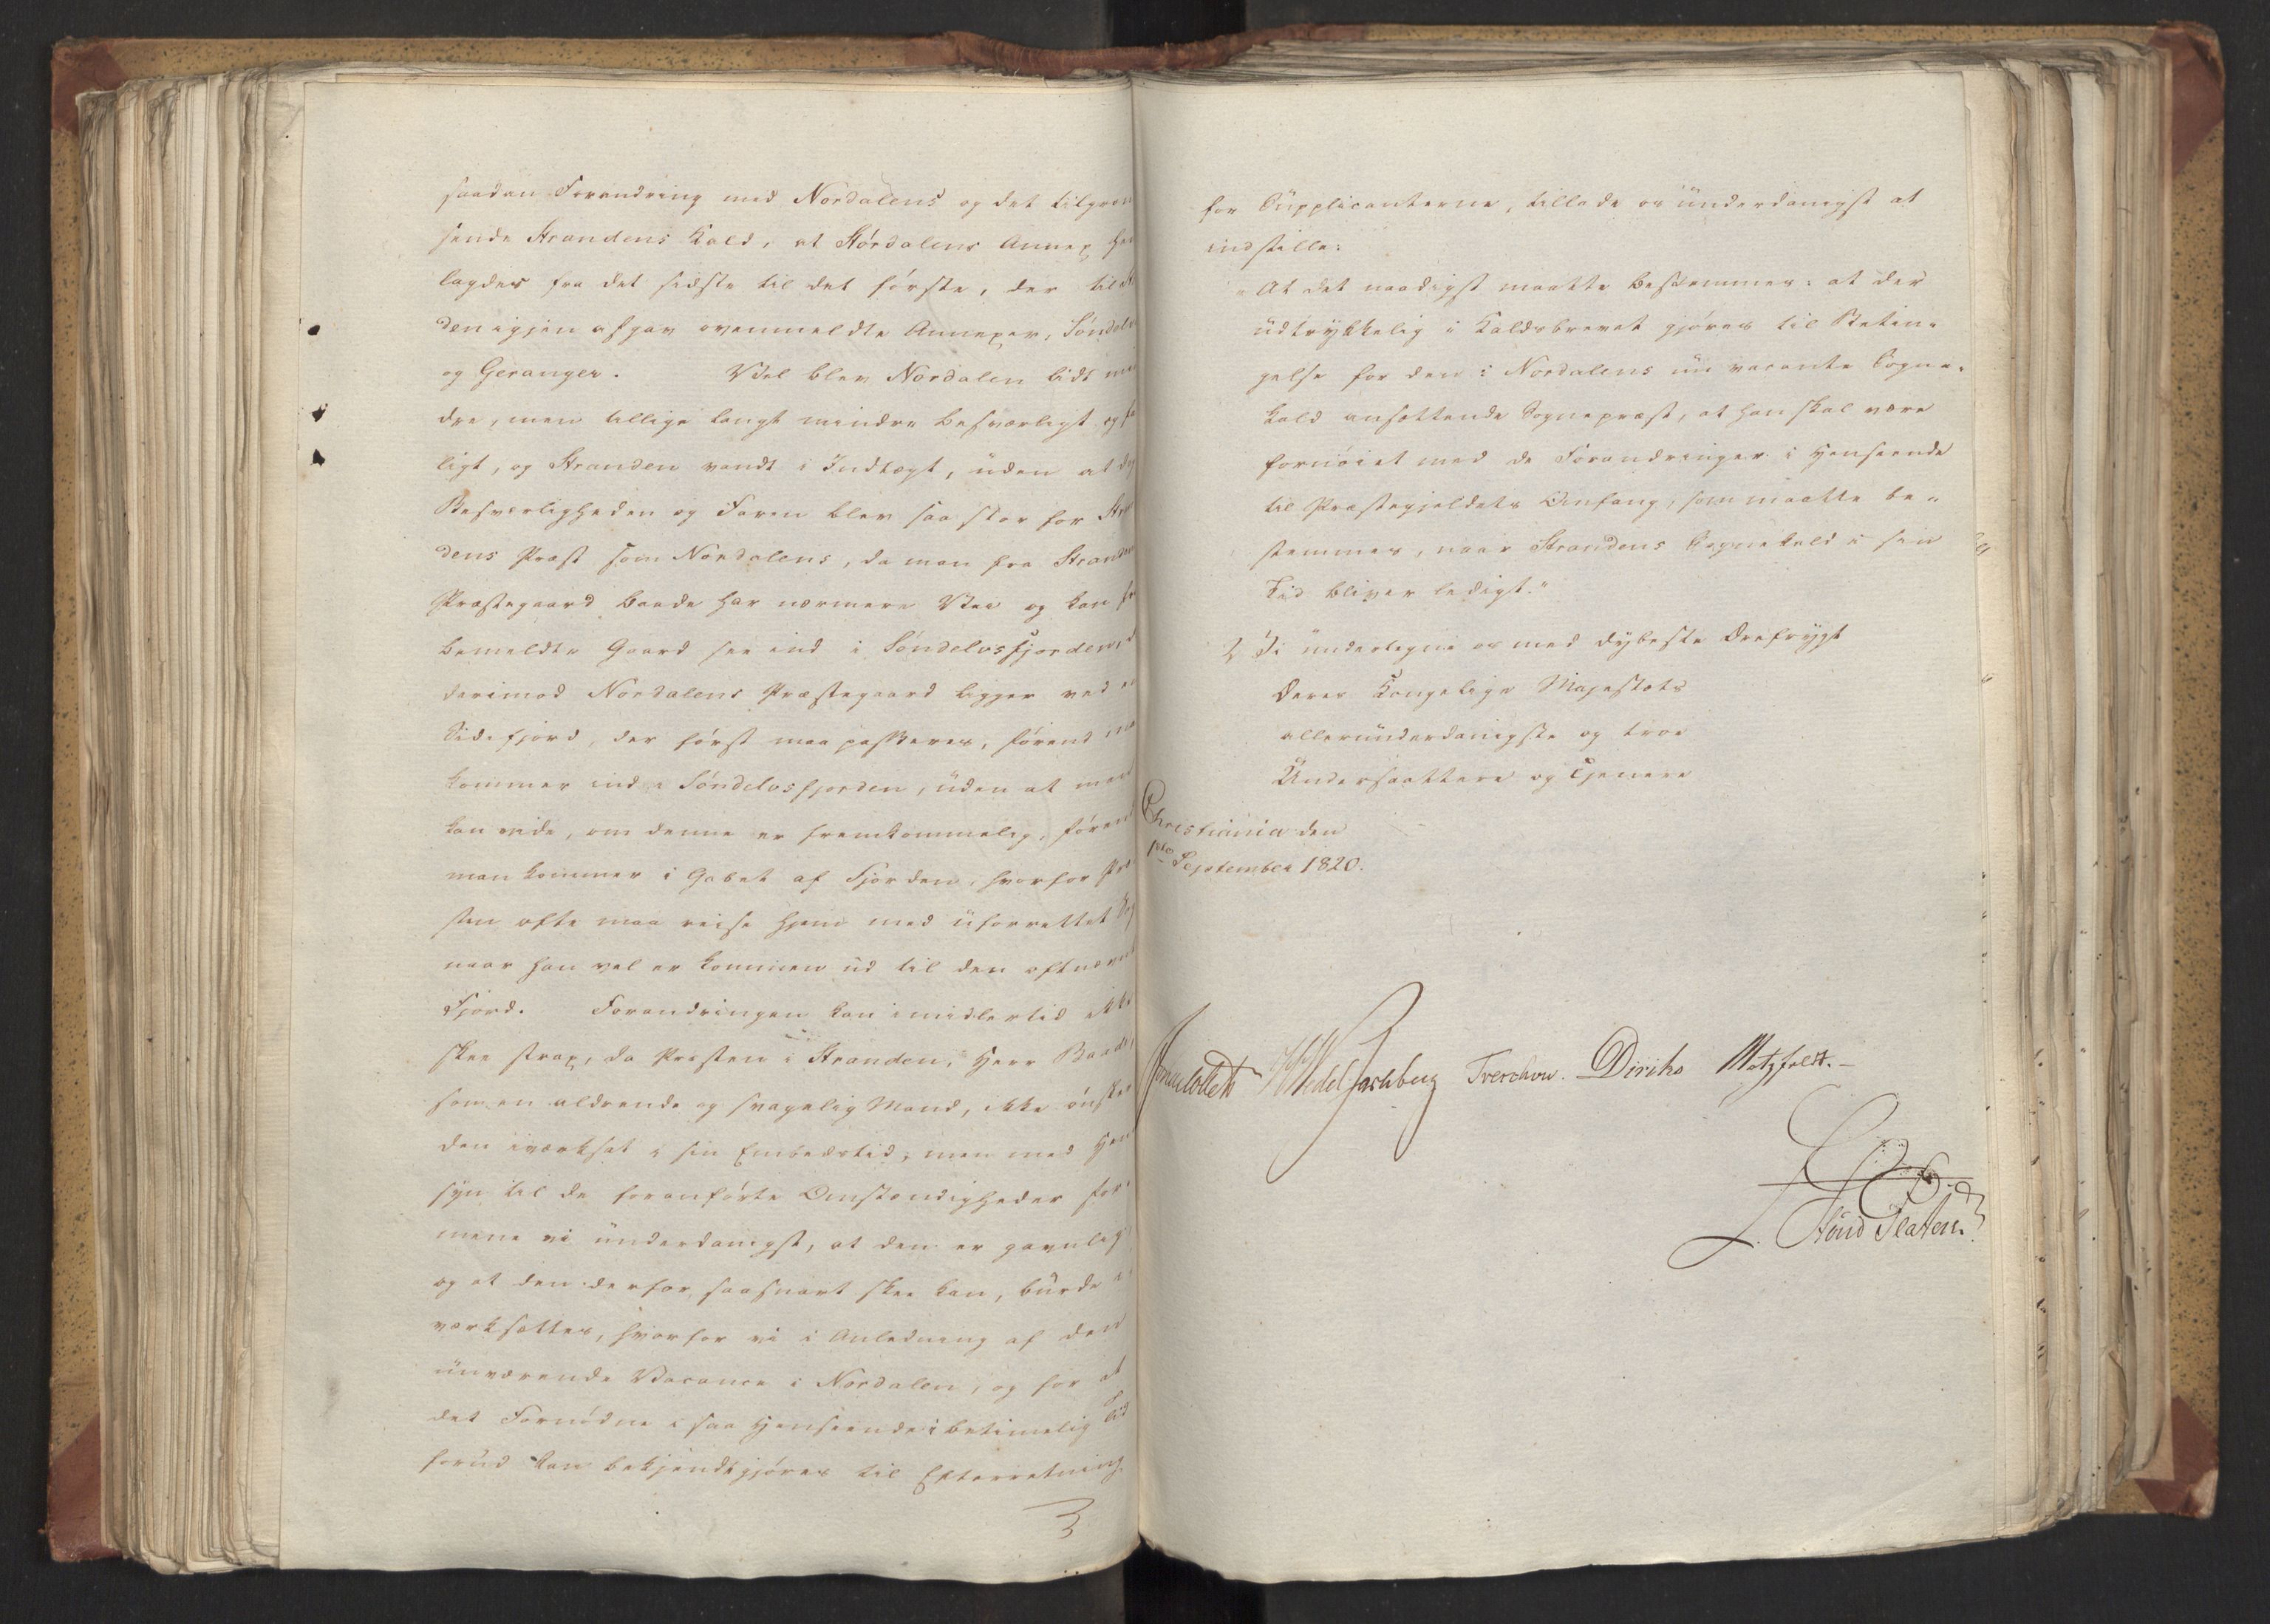 saadan Forandring med Nordalens og det tilgræn
sende Strandens Kald, at Stórdalens Annex hen
lagdes fra det sidste til det fórste, der til
den igjen afgav ovenmeldte Annexer, Söndelvs
og Geranger. Vel blev Nordalen lidt min
dre, men tillige langt mindre besværligt og
ligt, og Stranden vandt i Indtægt, uden at
Besværligheden og Faren blev saa stor for Stran
dens Præst som Nordalens, da man fra Stranden
Præstegaard baade har nærmere Vei og kan fra
bemeldte Gaard see ind i Söndelvsfjorden,
derimod Nordalens Præstegaard ligger ved en
Sidefjord, der fórst maa passeres, fórend man
kommer ind i Söndelvsfjorden, uden at man
kan vide, om denne er fremkommelig, fórend
man kommer i Gabet af Fjorden, hvorfor Præ
sten ofte maa reise hjem med uforrettet Sag
naar han vel er kommen ud til den oftnævnt
Fjord. Forandringen kan imidlertid ikke
skee strax, da Præsten i Stranden, Herr Baade,
som en aldrende og svagelig Mand, ikke ónsker
den iværksat i sin Embedstid, men med Hen
syn til de foranfórte Omstændigheder for-
mene vi underdanigst, at den er gavnlig
og at den derfor, saasnart skee kan, burde i
værksættes, hvorfor vi i Anledning af den
nuværende Vacance i Nordalen, og for at
det Fornódne i saa Henseende i betimelig Tid
forud kan bekjendtgjóres til Efterretning
for Supplicanterne, tillade os underdanigst at
indstille:
"At det naadigst maatte bestemmes: at der
udtrykkelig i Kaldsbrevet gjóres til Betin-
gelse for den i Nordalens nu vacante Sogne-
kald ansættende Sognepræst, at han skal være
fornóiet med de Forandringer i Henseende
til Præstegjeldets Omfang, som maatte be-
stemmes, naar Strandens Sognekald i sin
Tid bliver ledigt."
Vi undertegne os med dybeste Ærefrygt
Deres Kongelige Majestæts
allerunderdanigste og troe
Undersaattere og Tjenere
Christiania den
1ste September 1820.
Wedel Jarlsberg Treschow. Diriks Motzfeldt.